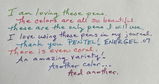 I am loving these pens.
The colors are all so beautiful
these are the only pens I will use.
I love using these pens in my journal.
Thank you PENTEL ENERGEL .7
There is even coral.
An amazing variety!
Another color...
And another.